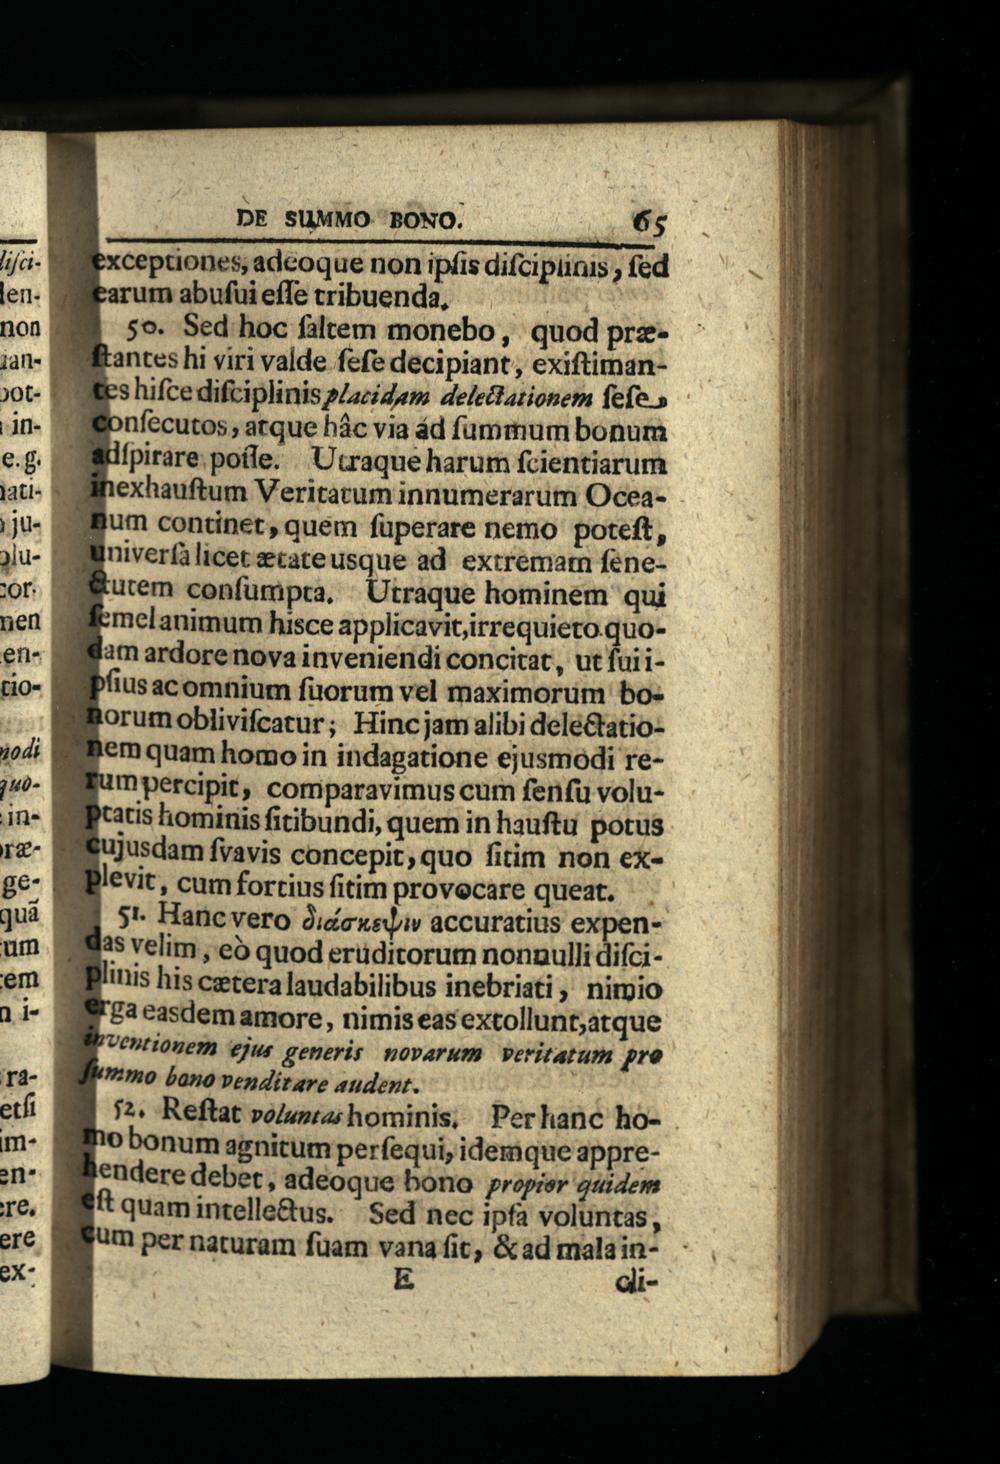 DE SUMMO BONO. 65
exceptiones, adeoque non ipſis diſciplinis, ſed
earum abuſui eſſe tribuenda.
50. Sed hoc ſaltem monebo, quod præ-
ſtantes hi viri valde ſeſe decipiant, exiſtiman-
tes hiſce diſciplinis placidam delectationem ſeſe
conſecutos, atque hâc via ad ſummum bonum
adſpirare poſſe. Utraque harum ſcientiarum
inexhauſtum Veritatum innumerarum Ocea-
num continet, quem ſuperare nemo poteſt,
univerſà licet ætate usque ad extremam ſene-
ctutem conſumpta. Utraque hominem qui
ſemel animum hisce applicavit, irrequieto quo-
dam ardore nova inveniendi concitat, ut ſui i-
pſius ac omnium ſuorum vel maximorum bo-
norum obliviſcatur; Hinc jam alibi delectatio-
nem quam homo in indagatione ejusmodi re-
rum percipit, comparavimus cum ſenſu volu-
ptatis hominis ſitibundi, quem in hauſtu potus
cujusdam ſvavis concepit, quo ſitim non ex-
plevit, cum fortius ſitim provocare queat.
51. Hanc vero διάσκεψιν accuratius expen-
das velim, eò quod eruditorum nonnulli diſci-
plinis his cætera laudabilibus inebriati, nimio
erga easdem amore, nimis eas extollunt, atque
inventionem ejus generis novarum veritatum pro
ſummo bono venditare audent.
52. Reſtat voluntas hominis. Per hanc ho-
mo bonum agnitum perſequi, idemque appre-
hendere debet, adeoque bono propior quidem
eſt quam intellectus. Sed nec ipſa voluntas,
cum per naturam ſuam vana ſit, & ad mala in-
E cli-